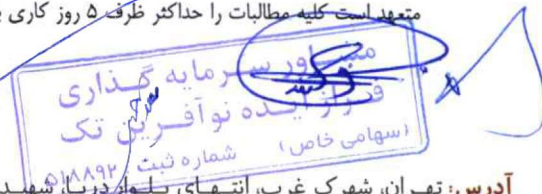 متعهد است کلیه مطالبات را حداکثر ظرف ۵ روز کاری
مشاور سرمایه گذاری
فراز ایده نوآفرین تک
(سهامی خاص)
شماره ثبت ۵۱۸۸۹۲
آدرس: تهران، شهرک غرب، انتهای بلوار دریا، شهید